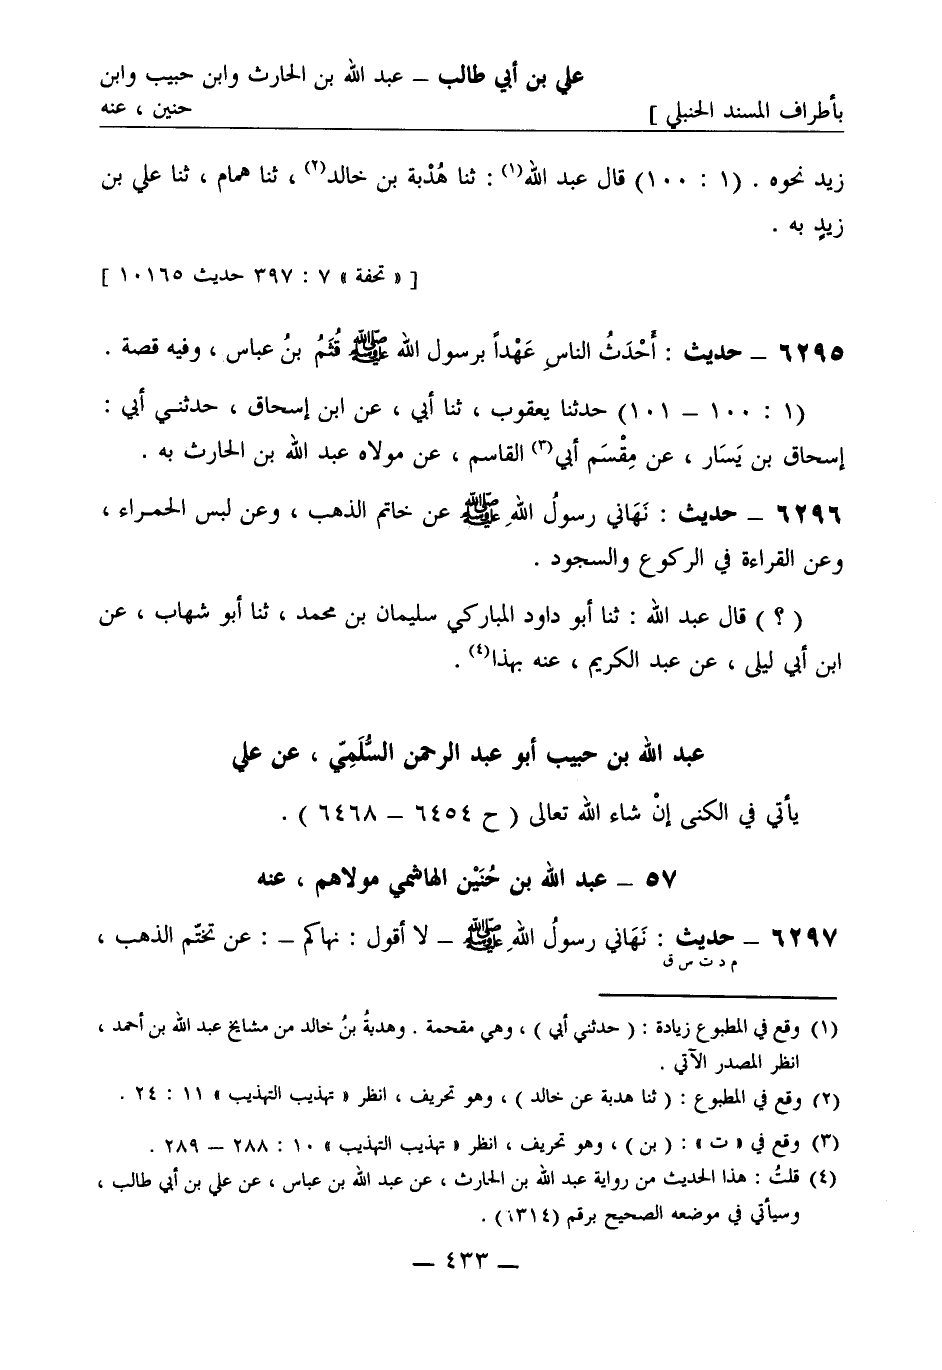 علي بن أبي طالب – عبد الله بن الحارث وابن حبيب وابن
حنين ، عنه
بأطراف المسند الحنبلي ]
زيد نحوه . (١ : ١٠٠) قال عبد الله(١) : ثنا هُدْبة بن خالد(٢) ، ثنا همام ، ثنا علي بن
زيدٍ به .
[ « تحفة » ٧ : ٣٩٧ حديث ١٠١٦٥ ]
٦٢٩٥ – حديث : أَحْدَثُ الناسِ عَهْداً برسول الله ﷺ قُثَمُ بنُ عباس ، وفيه قصة .
(١ : ١٠٠ – ١٠١) حدثنا يعقوب ، ثنا أبي ، عن ابن إسحاق ، حدثني أبي :
إسحاق بن يَسَار ، عن مِقْسَم أبي(٣) القاسم ، عن مولاه عبد الله بن الحارث به .
٦٢٩٦ – حديث : نَهَاني رسولُ اللهِ ﷺ عن خاتم الذهب ، وعن لبس الحمراء ،
وعن القراءة في الركوع والسجود .
( ؟ ) قال عبد الله : ثنا أبو داود المباركي سليمان بن محمد ، ثنا أبو شهاب ، عن
ابن أبي ليلى ، عن عبد الكريم ، عنه بهذا(٤) .
عبد الله بن حبيب أبو عبد الرحمن السُّلَمِيّ ، عن علي
يأتي في الكنى إنْ شاء الله تعالى ( ح ٦٤٥٤ – ٦٤٦٨ ) .
٥٧ – عبد الله بن حُنَيْن الهاشمي مولاهم ، عنه
٦٢٩٧ – حديث : نَهَاني رسولُ اللهِ ﷺ – لا أقول : نهاكم – : عن تختّم الذهب ،
م د ت س ق
(١) وقع في المطبوع زيادة : ( حدثني أبي ) ، وهي مقحمة . وهدبةُ بنُ خالد من مشايخ عبد الله بن أحمد ،
انظر المصدر الآتي .
(٢) وقع في المطبوع : ( ثنا هدبة عن خالد ) ، وهو تحريف ، انظر « تهذيب التهذيب » ١١ : ٢٤ .
(٣) وقع في « ت » : ( بن ) ، وهو تحريف ، انظر « تهذيب التهذيب » ١٠ : ٢٨٨ – ٢٨٩ .
(٤) قلتُ : هذا الحديث من رواية عبد الله بن الحارث ، عن عبد الله بن عباس ، عن علي بن أبي طالب ،
وسيأتي في موضعه الصحيح برقم (٦٣١٤) .
– ٤٣٣ –